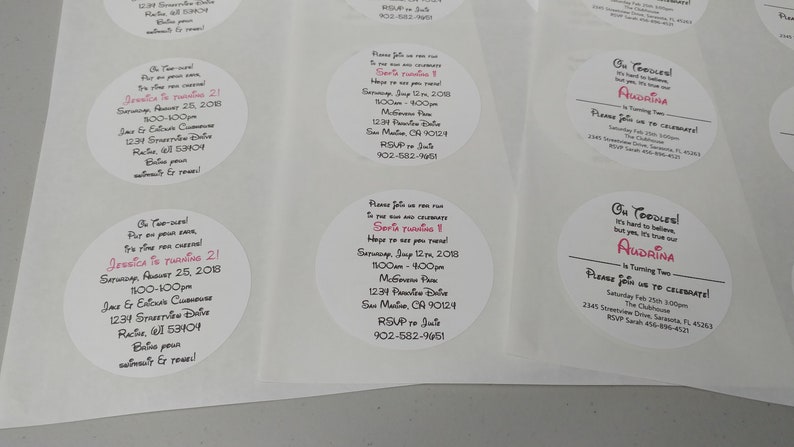 1234 Streetview Drive
Racine, WI 53404
Bring your
swimsuit & towel!
RSVP to Julie
902-582-9651
The Clubhouse
2345 Streetview Drive, Sarasota, FL 45263
RSVP Sarah 456-896-4521
Oh Two-dles!
Put on your ears,
it's time for cheers!
Jessica is turning 2!
Saturday, August 25, 2018
11:00-1:00pm
Jake & Ericka's Clubhouse
1234 Streetview Drive
Racine, WI 53404
Bring your
swimsuit & towel!
Please join us for fun
in the sun and celebrate
Sofia turning 1!
Hope to see you there!
Saturday, July 12th, 2018
11:00am - 4:00pm
McGovern Park
1234 Parkview Drive
San Marino, CA 90124
RSVP to Julie
902-582-9651
Oh Toodles!
It's hard to believe,
but yes, it's true our
Audrina
is Turning Two
Please join us to celebrate!
Saturday Feb 25th 3:00pm
The Clubhouse
2345 Streetview Drive, Sarasota, FL 45263
RSVP Sarah 456-896-4521
2345
Oh Two-dles!
Put on your ears,
it's time for cheers!
Jessica is turning 2!
Saturday, August 25, 2018
11:00-1:00pm
Jake & Ericka's Clubhouse
1234 Streetview Drive
Racine, WI 53404
Bring your
swimsuit & towel!
Please join us for fun
in the sun and celebrate
Sofia turning 1!
Hope to see you there!
Saturday, July 12th, 2018
11:00am - 4:00pm
McGovern Park
1234 Parkview Drive
San Marino, CA 90124
RSVP to Julie
902-582-9651
Oh Toodles!
It's hard to believe,
but yes, it's true our
Audrina
is Turning Two
Please join us to celebrate!
Saturday Feb 25th 3:00pm
The Clubhouse
2345 Streetview Drive, Sarasota, FL 45263
RSVP Sarah 456-896-4521